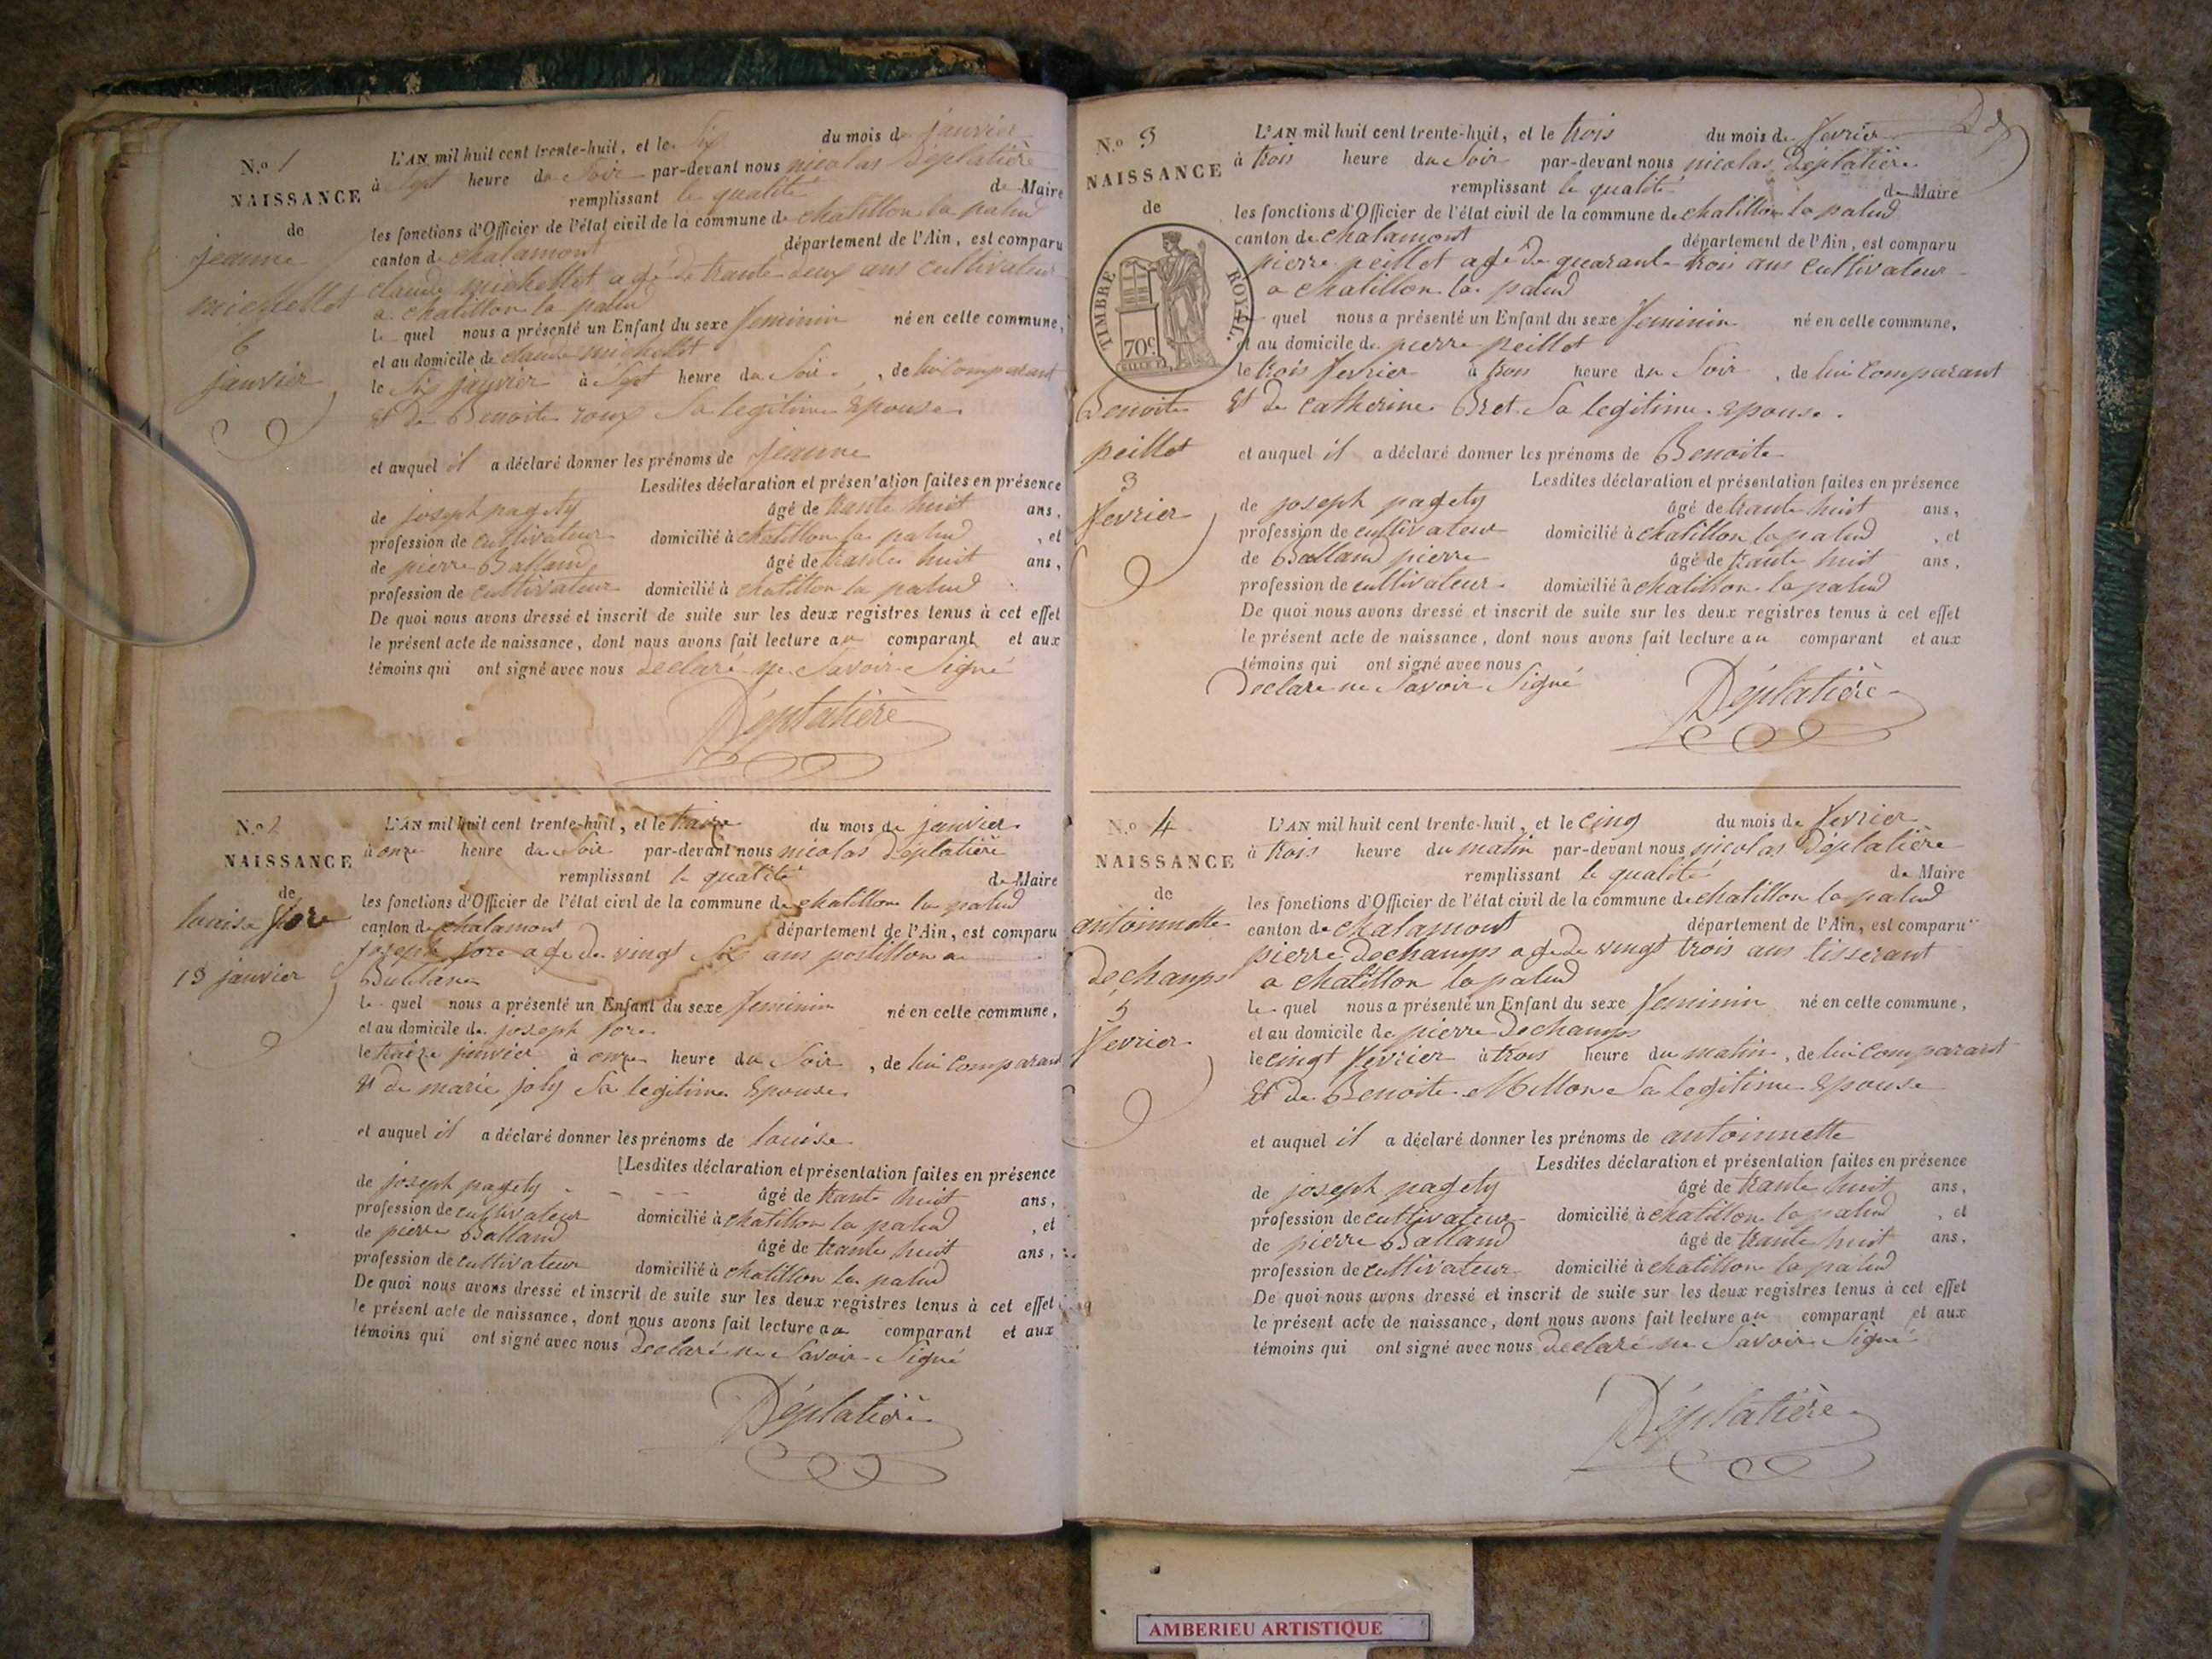 N.o 1
NAISSANCE
de
jeanne
michellet
6
janvier
L'AN mil huit cent trente-huit, et le Six du mois de janvier
à Sept heure du Soir par-devant nous nicolas Déplatière
remplissant le qualité de Maire
les fonctions d'Officier de l'état civil de la commune de chatillon la palud
canton de chalamont département de l'Ain, est comparu
claude michellet agé de trante deux ans cultivateur
a chatillon la palud
le quel nous a présenté un Enfant du sexe feminin né en cette commune,
et au domicile de claude michellet
le Six janvier à Sept heure du Soir, de lui Comparant
Et de Benoite roux Sa legitime Epouse
et auquel il a déclaré donner les prénoms de jeanne
Lesdites déclaration et présentation faites en présence
de joseph pagety âgé de trante huit ans,
profession de cultivateur domicilié à chatillon la palud, et
de pierre Balland âgé de trante huit ans,
profession de cultivateur domicilié à chatillon la palud
De quoi nous avons dressé et inscrit de suite sur les deux registres tenus à cet effet
le présent acte de naissance, dont nous avons fait lecture au comparant et aux
témoins qui ont signé avec nous Declaré ne Savoir Signé
Déplatière
N.o 2
NAISSANCE
de
louise fore
13 janvier
L'AN mil huit cent trente-huit, et le traize du mois de janvier
à onze heure du Soir par-devant nous nicolas Déplatière
remplissant le qualité de Maire
les fonctions d'Officier de l'état civil de la commune de chatillon la palud
canton de chalamont département de l'Ain, est comparu
joseph fore agé de vingt Six ans postillon a
Bublane
le quel nous a présenté un Enfant du sexe feminin né en cette commune,
et au domicile de joseph fore
le traize janvier à onze heure du Soir, de lui Comparant
Et de marie joly Sa legitime Epouse
et auquel il a déclaré donner les prénoms de louise
Lesdites déclaration et présentation faites en présence
de joseph pagety âgé de trante huit ans,
profession de cultivateur domicilié à chatillon la palud, et
de pierre Balland âgé de trante huit ans,
profession de cultivateur domicilié à chatillon la palud
De quoi nous avons dressé et inscrit de suite sur les deux registres tenus à cet effet
le présent acte de naissance, dont nous avons fait lecture au comparant et aux
témoins qui ont signé avec nous Declaré ne Savoir Signé
Déplatière
N.o 3
NAISSANCE
de
TIMBRE ROYAL.
70c
Benoite
peillot
3
fevrier
L'AN mil huit cent trente-huit, et le trois du mois de fevrier
à trois heure du Soir par-devant nous nicolas Déplatière
remplissant le qualité de Maire
les fonctions d'Officier de l'état civil de la commune de chatillon la palud
canton de chalamont département de l'Ain, est comparu
pierre peillot agé de quarante trois ans cultivateur
a chatillon la palud
le quel nous a présenté un Enfant du sexe feminin né en cette commune,
et au domicile de pierre peillot
le trois fevrier à trois heure du Soir, de lui Comparant
Et de catherine Bret Sa legitime epouse.
et auquel il a déclaré donner les prénoms de Benoite
Lesdites déclaration et présentation faites en présence
de joseph pagety âgé de trante huit ans,
profession de cultivateur domicilié à chatillon la palud, et
de Balland pierre âgé de trante huit ans,
profession de cultivateur domicilié à chatillon la palud
De quoi nous avons dressé et inscrit de suite sur les deux registres tenus à cet effet
le présent acte de naissance, dont nous avons fait lecture au comparant et aux
témoins qui ont signé avec nous
Declare ne Savoir Signé
Déplatière
N.o 4
NAISSANCE
de
antoinnette
Dechamps
5
fevrier
L'AN mil huit cent trente-huit, et le cinq du mois de fevrier
à trois heure du matin par-devant nous nicolas Déplatière
remplissant le qualité de Maire
les fonctions d'Officier de l'état civil de la commune de chatillon la palud
canton de chalamont département de l'Ain, est comparu
pierre Dechamps agé de vingt trois ans tisserant
a chatillon la palud
le quel nous a présenté un Enfant du sexe feminin né en cette commune,
et au domicile de pierre Dechamps
le cingt fevrier à trois heure du matin, de lui comparant
Et de Benoite Millon Sa legitime Epouse
et auquel il a déclaré donner les prénoms de antoinnette
Lesdites déclaration et présentation faites en présence
de joseph pagety âgé de trante huit ans,
profession de cultivateur domicilié à chatillon la palud, et
de pierre Balland âgé de trante huit ans,
profession de cultivateur domicilié à chatillon la palud
De quoi nous avons dressé et inscrit de suite sur les deux registres tenus à cet effet
le présent acte de naissance, dont nous avons fait lecture au comparant et aux
témoins qui ont signé avec nous Declaré ne Savoir Signé
Déplatière
AMBERIEU ARTISTIQUE